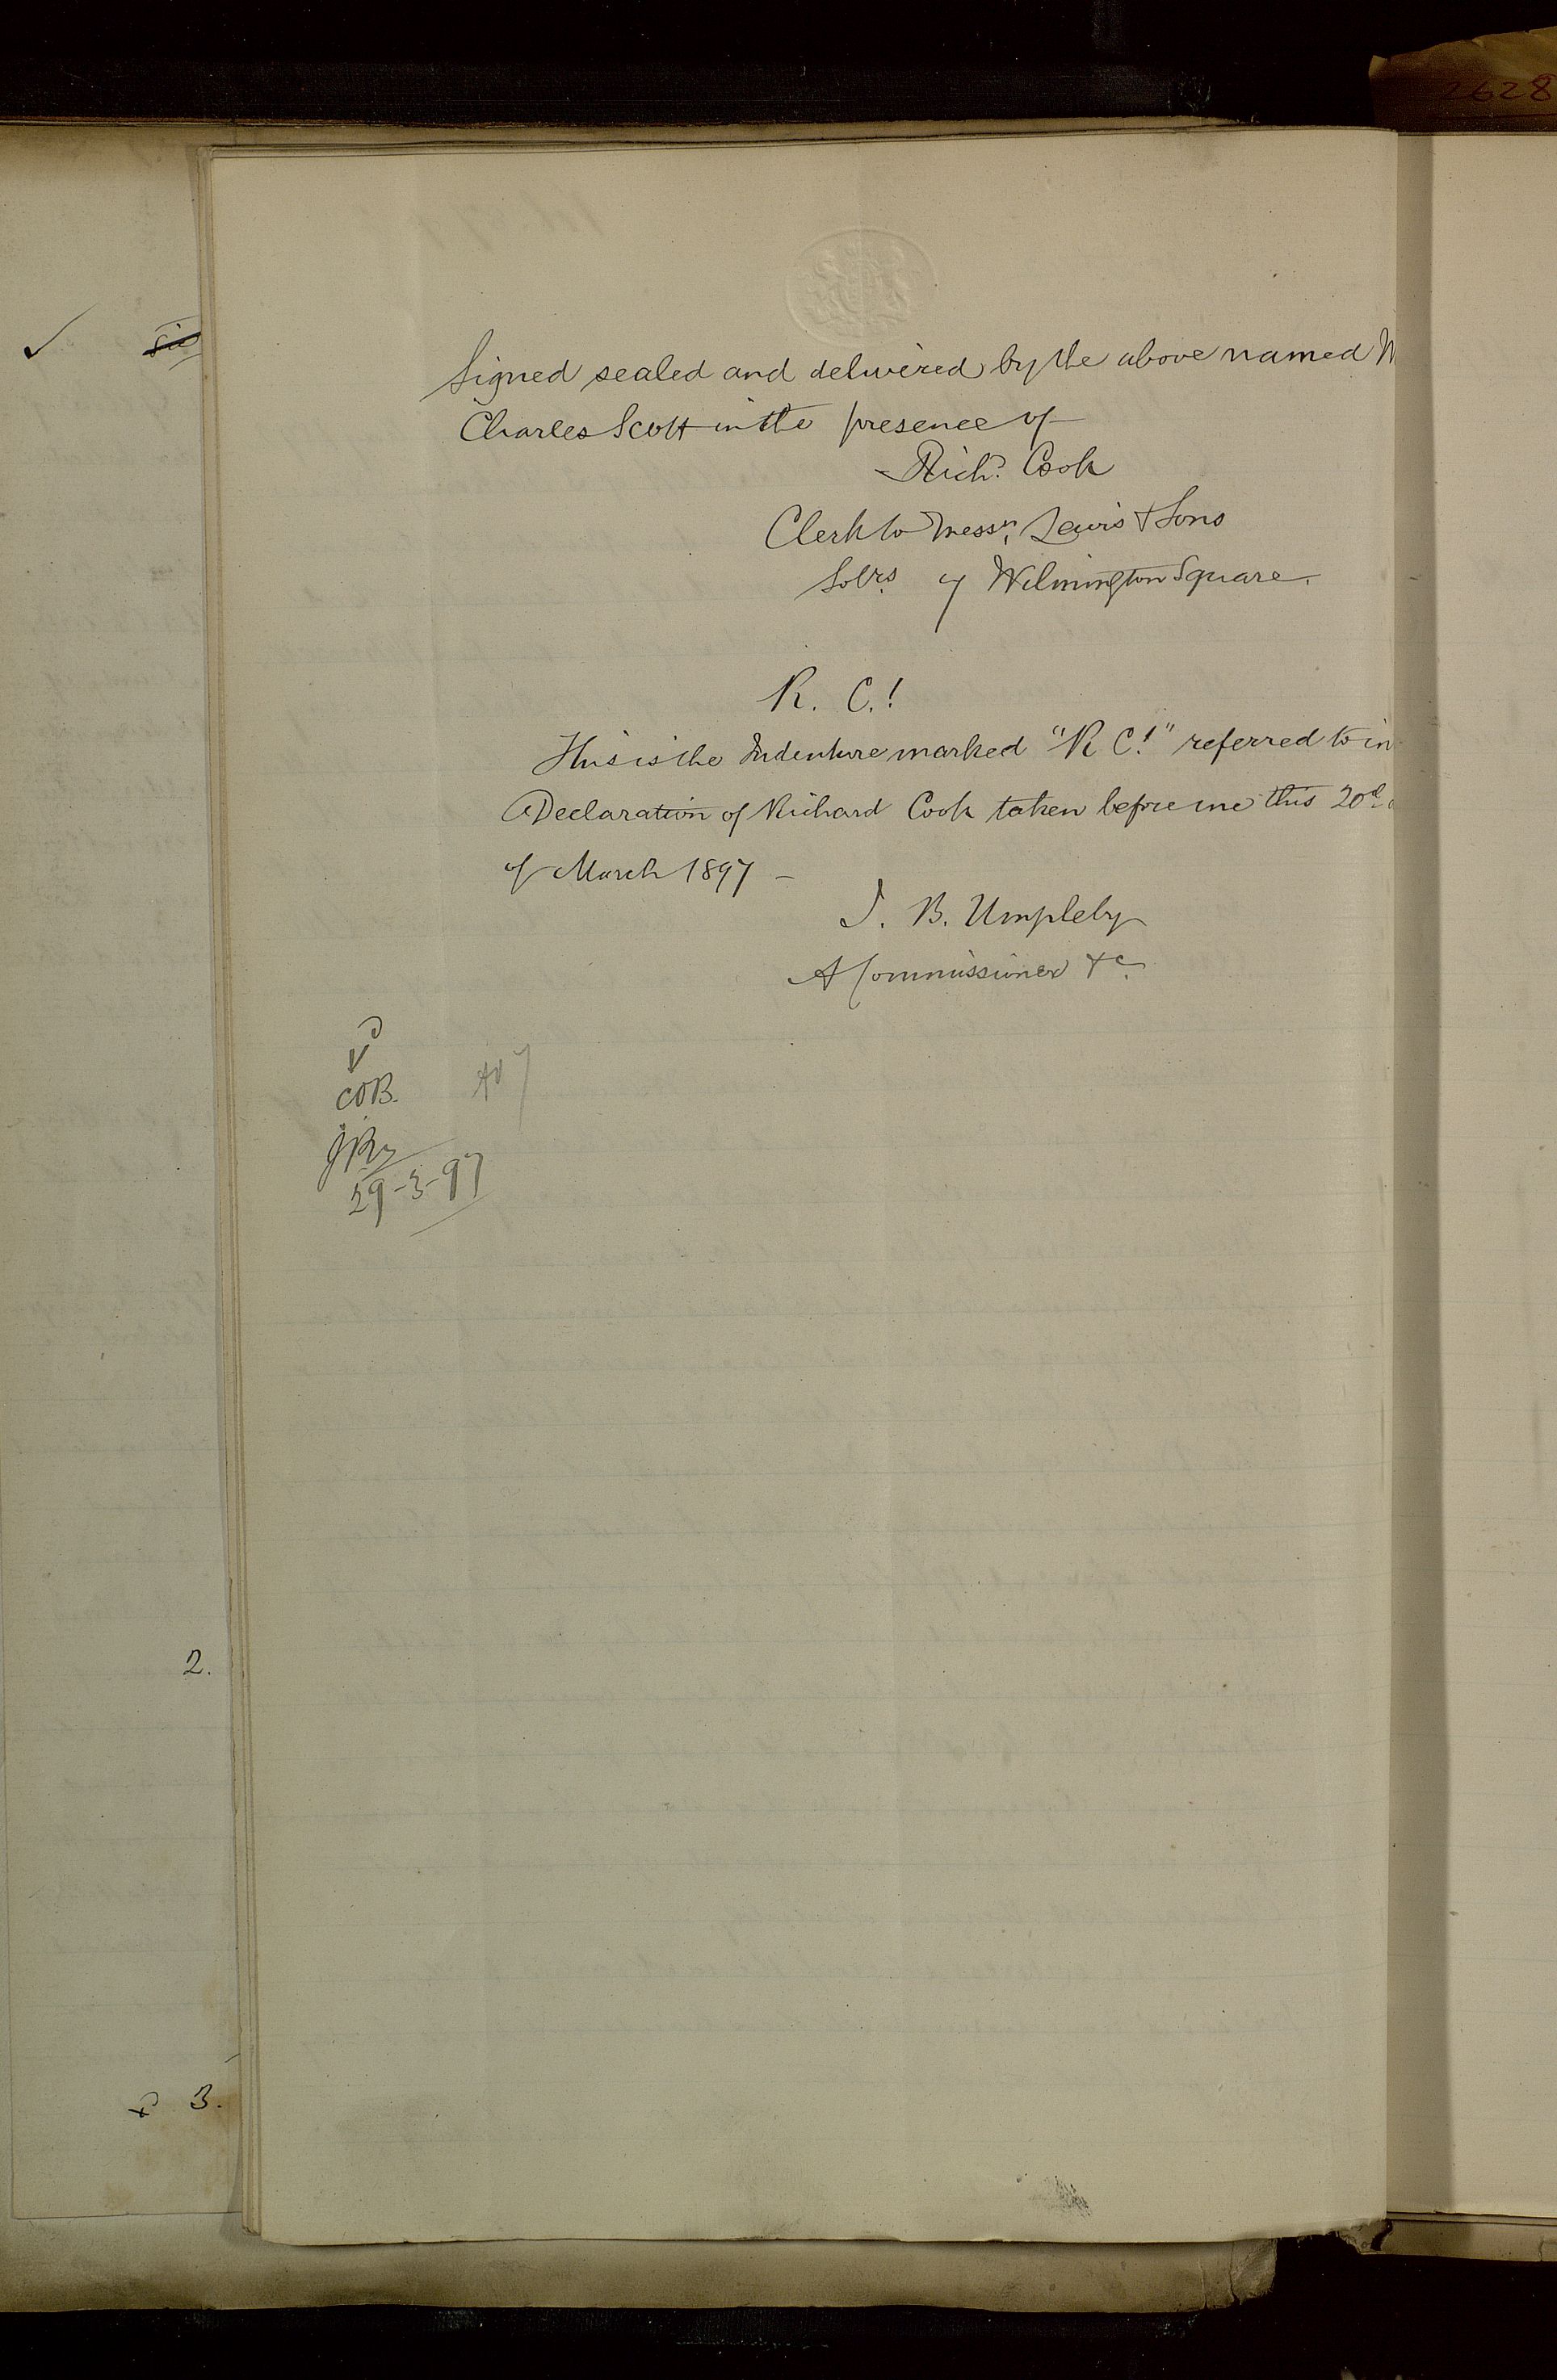 2628
Signed sealed and delivered by the above named W
Charles Scott in the presence of
Richd. Cook
Clerk to Messrs. Lewis & Sons
Solrs. 7 Wilmington Square.
R. C. 1
This is the Indenture marked "R C. 1" referred to in
Declaration of Richard Cook taken before me this 20th
of March 1897 —
J. B. Umpleby
A Commissioner &c.
COB.
29-3-97
2.
3.